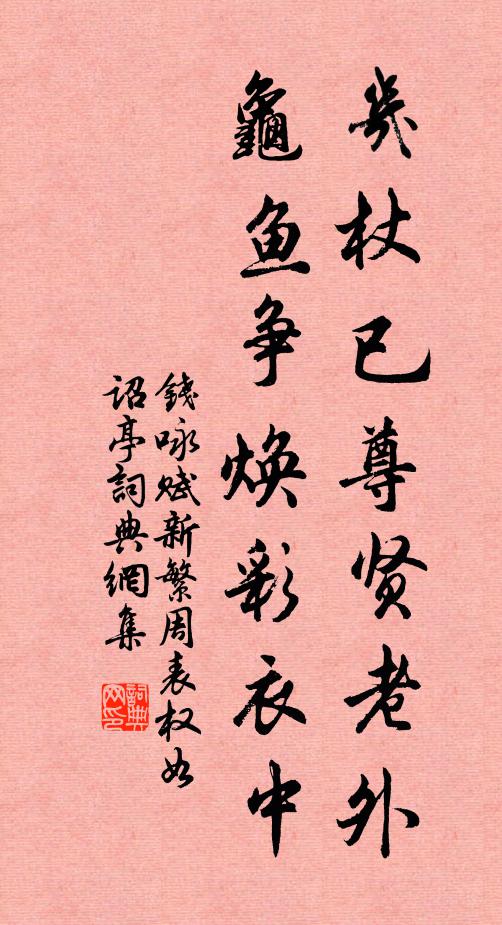 几杖已尊贤老外
龜鱼争焕彩衣中
錢咏赋新繁周表权如
诏亭詞典網集
詞典网印